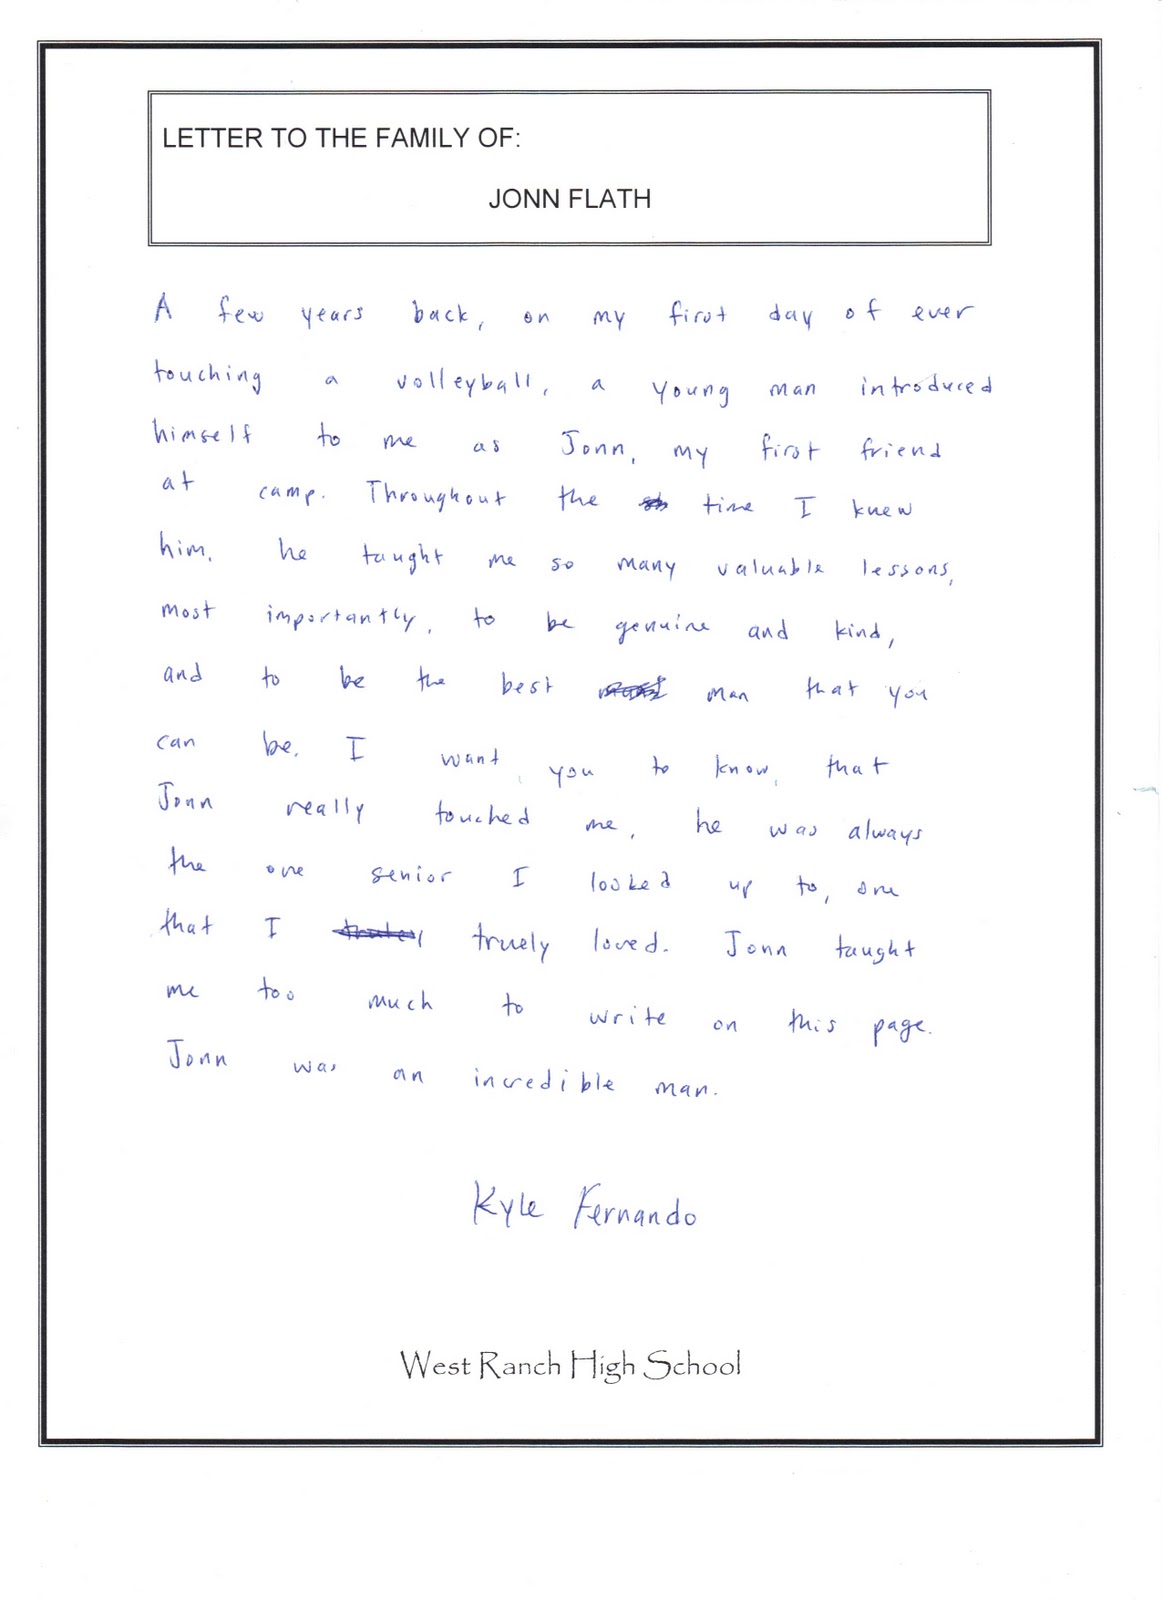 LETTER TO THE FAMILY OF:
JONN FLATH
A few years back, on my first day of ever
touching a volleyball, a young man introduced
himself to me as Jonn, my first friend
at camp. Throughout the time I knew
him, he taught me so many valuable lessons,
most importantly, to be genuine and kind,
and to be the best man that you
can be. I want you to know, that
Jonn really touched me, he was always
the one senior I looked up to, one
that I truely loved. Jonn taught
me too much to write on this page.
Jonn was an incredible man.
Kyle Fernando
West Ranch High School